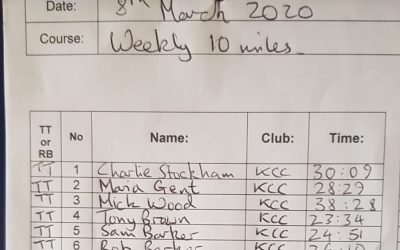 Date: 8th March 2020
Course: Weekly 10 miles
TT or RB No Name: Club: Time:
TT 1 Charlie Stockham KCC 30:09
TT 2 Maria Gent KCC 28:29
TT 3 Mick Wood KCC 38:28
TT 4 Tony Brown KCC 23:34
TT 5 Sam Barker KCC 24:51
TT 6 Rob Barker KCC